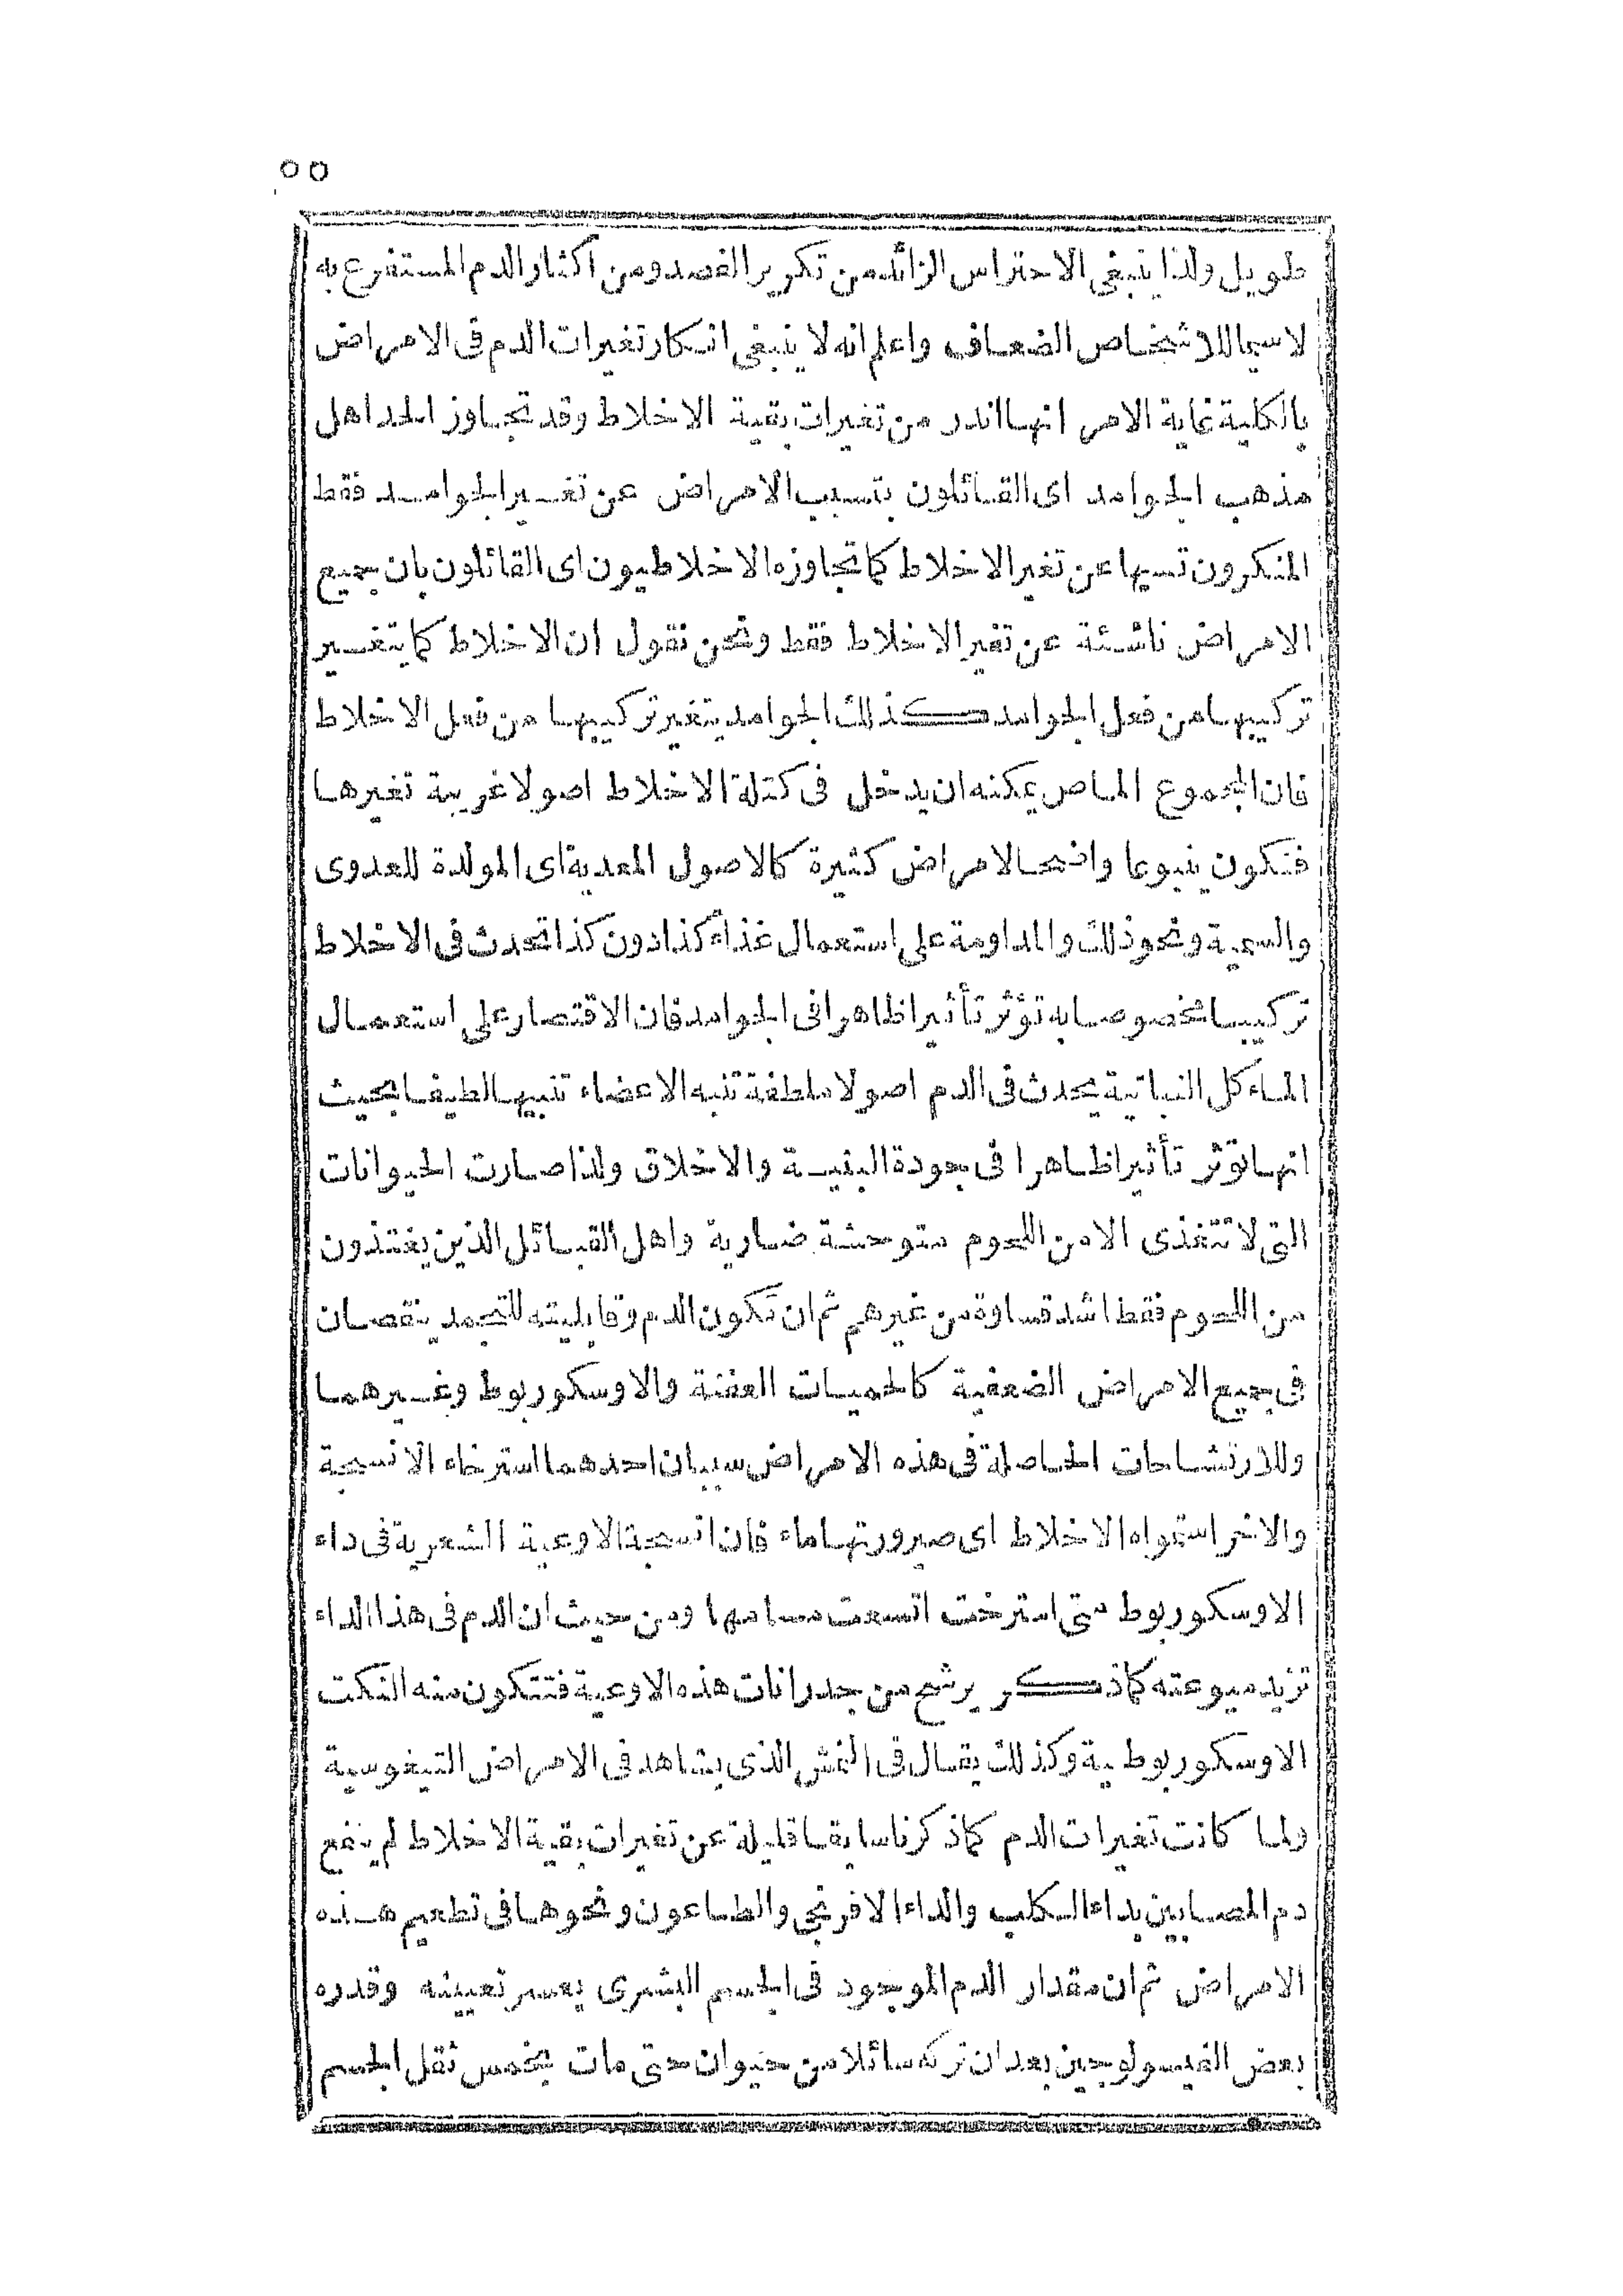 ٥٥
طويل ولذا ينبغى الاحتراس الزائد من تكرير الفصد ومن اكثار الدم المستفرغ به
لاسيما للاشخاص الضعاف واعلم انه لا ينبغى انكار تغيرات الدم فى الامراض
بالكلية غاية الامر انها اندر من تغيرات بقية الاخلاط وقد تجاوز الحد اهل
مذهب الجوامد اى القائلون بتسبب الامراض عن تغير الجوامد فقط
المنكرون تسببها عن تغير الاخلاط كما تجاوزه الاخلاطيون اى القائلون بان جميع
الامراض ناشئة عن تغير الاخلاط فقط ونحن نقول ان الاخلاط كما يتغير
تركيبها من فعل الجوامد كذلك الجوامد يتغير تركيبها من فعل الاخلاط
فان المجموع الماص يمكنه ان يدخل فى كتلة الاخلاط اصولا غريبة تغيرها
فتكون ينبوعا واضحا لامراض كثيرة كالاصول المعدية اى المولدة للعدوى
والسمية ونحو ذلك والمداومة على استعمال غذاء كذا دون كذا تحدث فى الاخلاط
تركيبا مخصوصا به تؤثر تأثيرا ظاهرا فى الجوامد فان الاقتصار على استعمال
الماء كل النباتية يحدث فى الدم اصولا ملطفة تنبه الاعضاء تنبيها لطيفا بحيث
انها تؤثر تأثيرا ظاهرا فى جودة البنية والاخلاق ولذا صارت الحيوانات
التى لا تتغذى الا من اللحوم متوحشة ضارية واهل القبائل الذين يغتذون
من اللحوم فقط اشد قساوة من غيرهم ثم ان تكون الدم وقابليته للتجمد ينقصان
فى جميع الامراض الضعفية كالحميات العفنة والاوسكوربوط وغيرهما
وللارتشاحات الحاصلة فى هذه الامراض سببان احدهما استرخاء الانسجة
والاخر استمواه الاخلاط اى صيرورتها ماء فان انسجة الاوعية الشعرية فى داء
الاوسكوربوط متى استرخت اتسعت مسامها ومن حيث ان الدم فى هذا الداء
تزيد ميوعته كما ذكر يرشح من جدرانات هذه الاوعية فتتكون منه النكت
الاوسكوربوطية وكذلك يقال فى النمش الذى يشاهد فى الامراض التيفوسية
ولما كانت تغيرات الدم كما ذكرنا سابقا قليلة عن تغيرات بقية الاخلاط لم ينفع
دم المصابين بداء الكلب والداء الافرنجى والطاعون ونحوها فى تطعيم هذه
الامراض ثم ان مقدار الدم الموجود فى الجسم البشرى يعسر تعيينه وقدره
بعض الفيسولوجيين بعد ان تركه سائلا من حيوان حتى مات بخمس ثقل الجسم